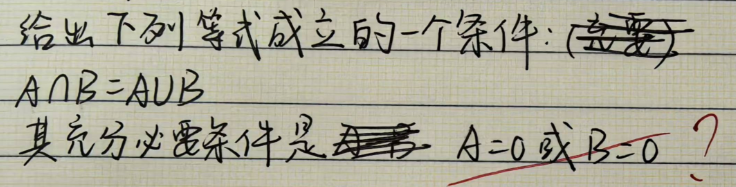 给出下列等式成立的一个条件：(充要)
A∩B=A∪B
其充分必要条件是 A=B A=0或B=0 ?